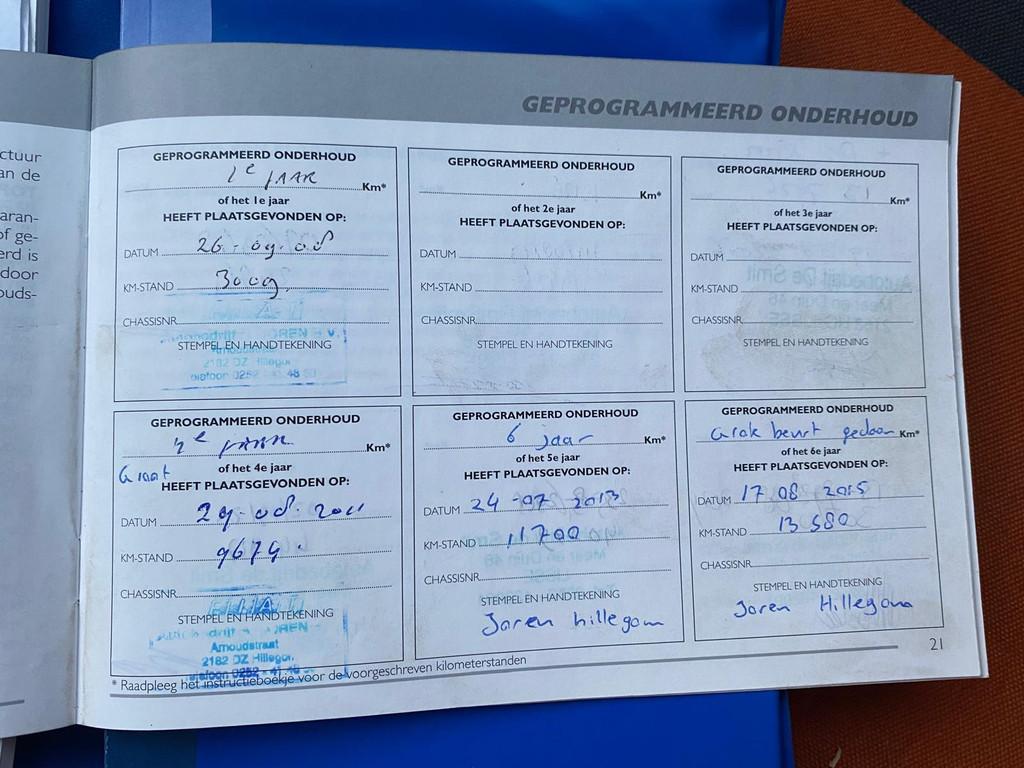 ctuur
an de
aran-
of ge-
erd is
door
ouds-
GEPROGRAMMEERD ONDERHOUD
GEPROGRAMMEERD ONDERHOUD
1e JAAR Km*
of het 1e jaar
HEEFT PLAATSGEVONDEN OP:
DATUM 26-09-08
KM-STAND 3009
CHASSISNR.
STEMPEL EN HANDTEKENING
2182 DZ Hillegom
telefoon 0252
GEPROGRAMMEERD ONDERHOUD
Km*
of het 2e jaar
HEEFT PLAATSGEVONDEN OP:
DATUM
KM-STAND
CHASSISNR.
STEMPEL EN HANDTEKENING
GEPROGRAMMEERD ONDERHOUD
Km*
of het 3e jaar
HEEFT PLAATSGEVONDEN OP:
DATUM
KM-STAND
CHASSISNR.
STEMPEL EN HANDTEKENING
GEPROGRAMMEERD ONDERHOUD
4e JAAR Km*
of het 4e jaar
HEEFT PLAATSGEVONDEN OP:
DATUM 29-08-2011
KM-STAND 9679
CHASSISNR.
STEMPEL EN HANDTEKENING
Arnoudstraat
2182 DZ Hillegom
telefoon 0252 - 41 48
GEPROGRAMMEERD ONDERHOUD
6 jaar Km*
of het 5e jaar
HEEFT PLAATSGEVONDEN OP:
DATUM 24-07 2013
KM-STAND 11700
CHASSISNR.
STEMPEL EN HANDTEKENING
Joren hillegom
GEPROGRAMMEERD ONDERHOUD
beurt gedaan Km*
of het 6e jaar
HEEFT PLAATSGEVONDEN OP:
DATUM 17 08 2015
KM-STAND 13580
CHASSISNR.
STEMPEL EN HANDTEKENING
Joren Hillegom
* Raadpleeg het instructieboekje voor de voorgeschreven kilometerstanden
21